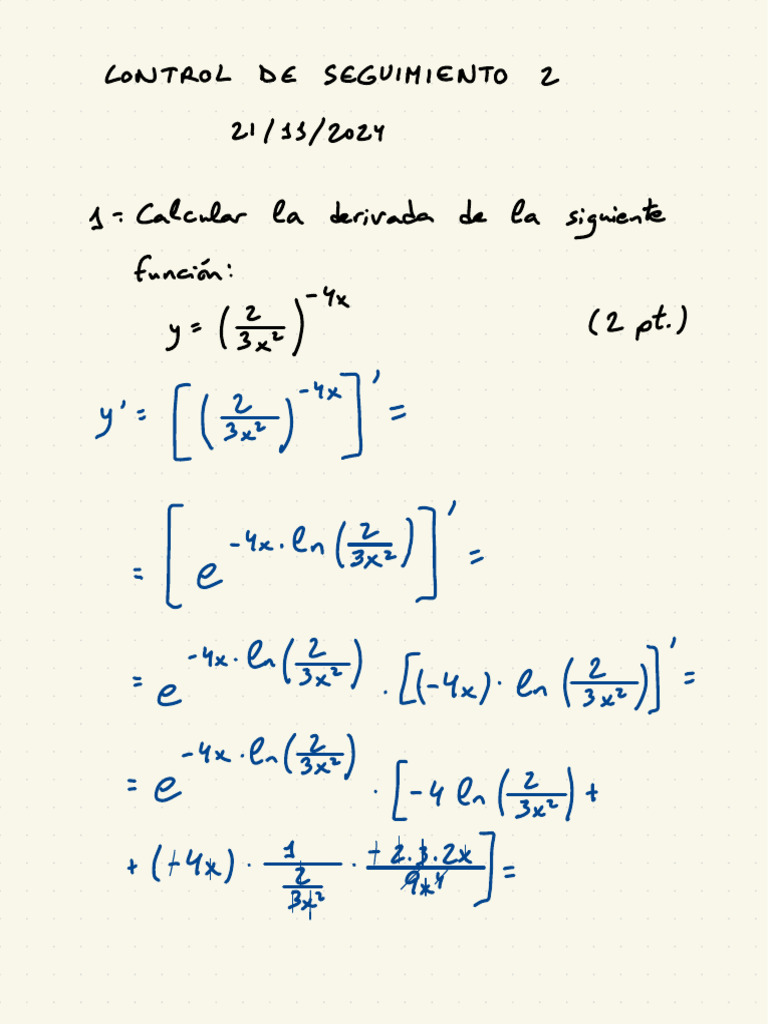 CONTROL DE SEGUIMIENTO 2
21/11/2024
1.- Calcular la derivada de la siguiente
función:
y = (2/(3x²))^(-4x) (2 pt.)
y' = [(2/(3x²))^(-4x)]' =
= [e^(-4x·ln(2/(3x²)))]' =
= e^(-4x·ln(2/(3x²))) · [(-4x)·ln(2/(3x²))]' =
= e^(-4x·ln(2/(3x²))) · [-4 ln(2/(3x²)) +
+ (-4x) · 1/(2/(3x²)) · (-2·3·2x)/(9x⁴)] =